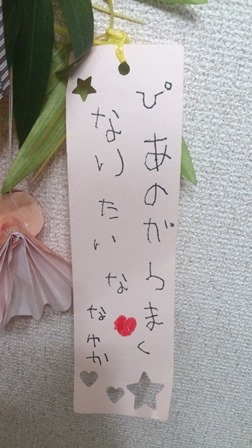 ぴあのがうまく
なりたいな
なゆか